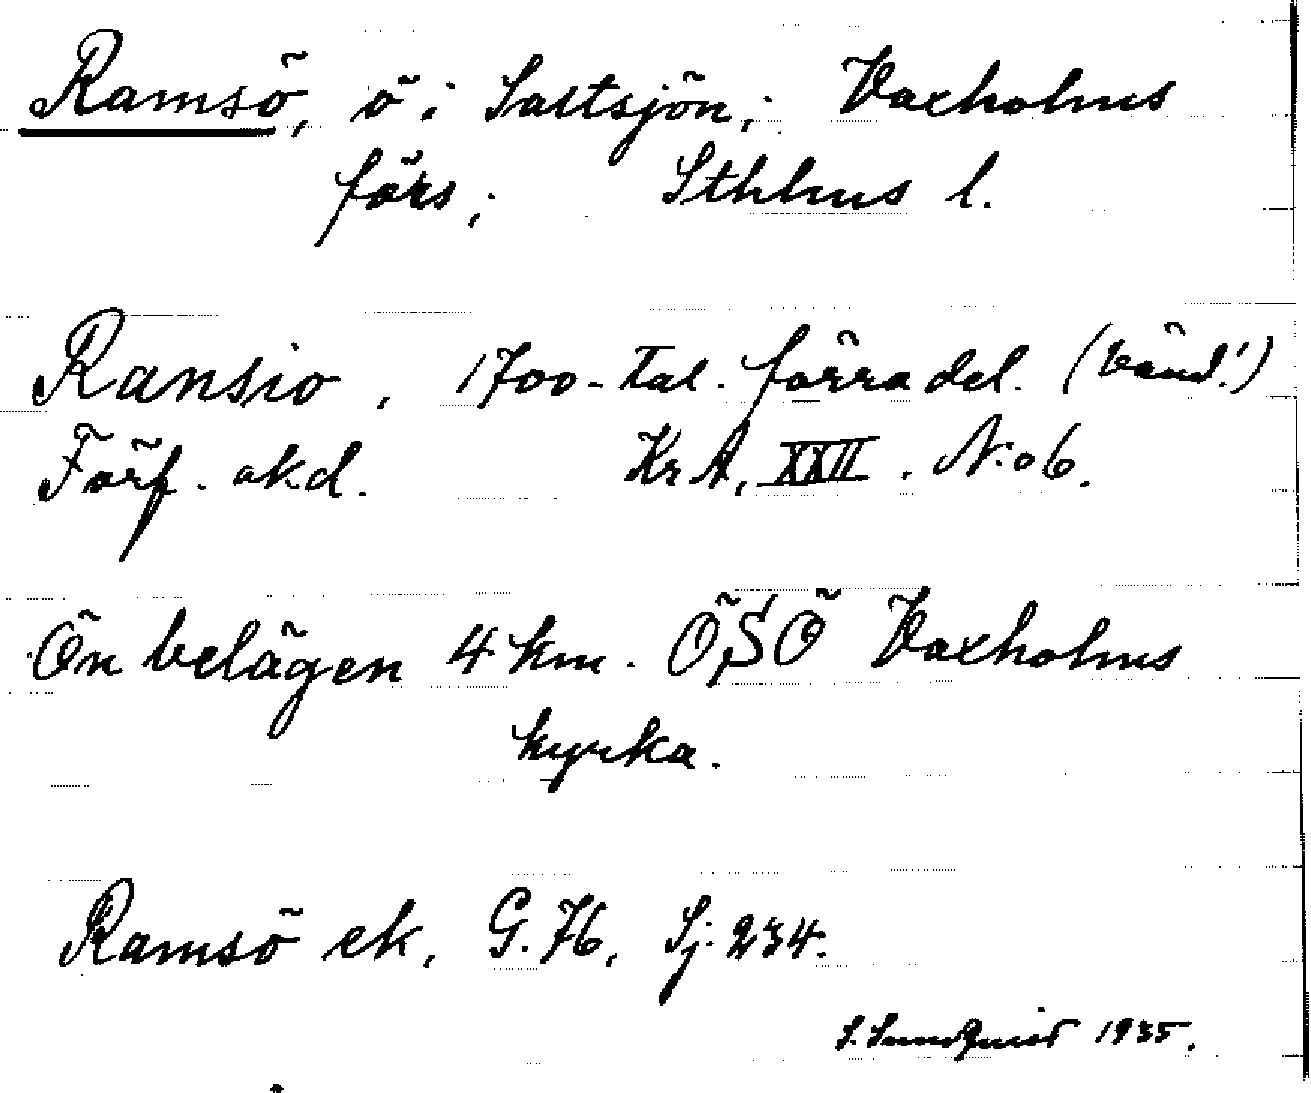 Ramsö, ö i Saltsjön; Vaxholms
förs; Sthlms l.
Ransio, 1700-tal. förra del. (vänd!)
Förf. okd. KrA, XXII. No 6.
Ön belägen 4 km. ÖSÖ Vaxholms
kyrka.
Ramsö ek, G. 76, Sj. 234.
S. Sundquist 1935.